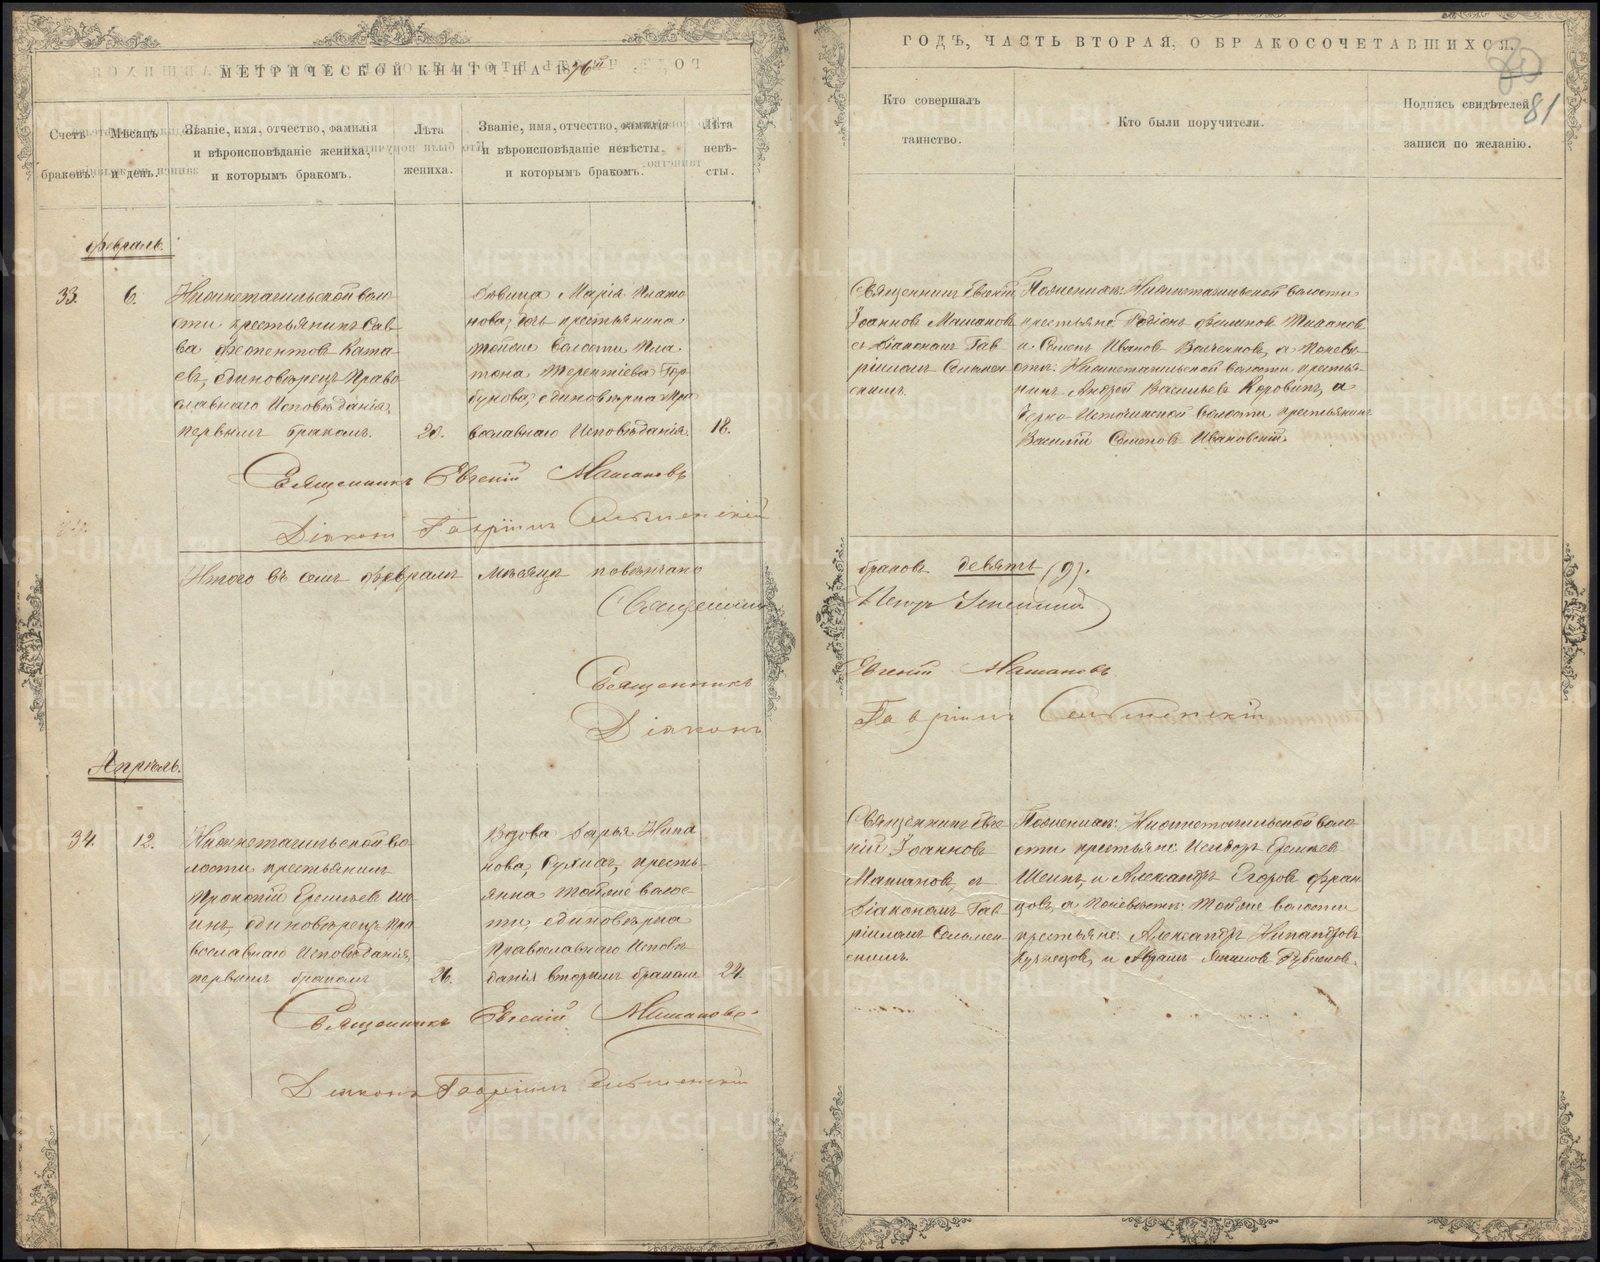 МЕТРИЧЕСКОЙ КНИГИ НА 1876й
ГОДЪ, ЧАСТЬ ВТОРАЯ, О БРАКОСОЧЕТАВШИХСЯ.
80
81
Счетъ браковъ.
Мѣсяцъ и день.
Званіе, имя, отчество, фамилія
и вѣроисповѣданіе жениха,
и которымъ бракомъ.
Лѣта
жениха.
Званіе, имя, отчество, фамилія
и вѣроисповѣданіе невѣсты,
и которымъ бракомъ.
Лѣта
невѣ-
сты.
Кто совершалъ
таинство.
Кто были поручители.
Подпись свидѣтелей
записи по желанію.
Февраль.
33.
6.
Нижнетагильской воло
сти крестьянинъ Сав
ва Феопентов Ката
евъ, единовѣрецъ Право
славнаго Исповѣданія,
первымъ бракомъ.
20.
Дѣвица Марія Плато
нова, дочь крестьянина
тойже волости Пла
тона Терентіева Гор
бунова, единовѣрка Пра
вославнаго Исповѣданія.
18.
Священникъ Евгеній
Іоанновъ Машановъ
съ діакономъ Гав
ріиломъ Сельмен
скимъ.
Поженихѣ: Нижнетагильской волости
крестьяне: Родіонъ Филиповъ
и Семенъ Ивановъ а Поневѣ
стѣ: Нижнетагильской волости крестья
нинъ Андрей Васильевъ Коровинъ, а
Черно-Источинской волости крестьянинъ
Василій Семеновъ Ивановскій.
Священникъ Евгеній Машановъ
Діаконъ Гавріилъ Сельменскій
Итого въ семъ Февралѣ мѣсяцѣ повѣнчано
браковъ девять (9).
Священникъ
Петръ
Священникъ
Евгеній Машановъ
Діаконъ
Гавріилъ Сельменскій
Апрѣль.
34.
12.
Нижнетагильской во
лости крестьянинъ
Прокопій Еремѣевъ Ше
инъ, единовѣрецъ Пра
вославнаго Исповѣданія,
первымъ бракомъ
26.
Вдова Дарья Ника
нова, кресть
янка тойже волос
ти, единовѣрка
Православнаго Исповѣ
данія вторымъ бракомъ
24.
Священникъ Евге
ній Іоанновъ
Машановъ, съ
Діакономъ Гав
ріиломъ Сельмен
скимъ.
Поженихѣ: Нижнетагильской воло
сти крестьяне: Исидоръ Еремѣевъ
Шеинъ, и Александръ Егоровъ Фран
цовъ, а Поневѣстѣ: Тойже волости
крестьяне: Александръ Никандровъ
Кузнецовъ, и
Священникъ Евгеній Машановъ
Діаконъ Гавріилъ Сельменскій
METRIKI.GASO-URAL.RU